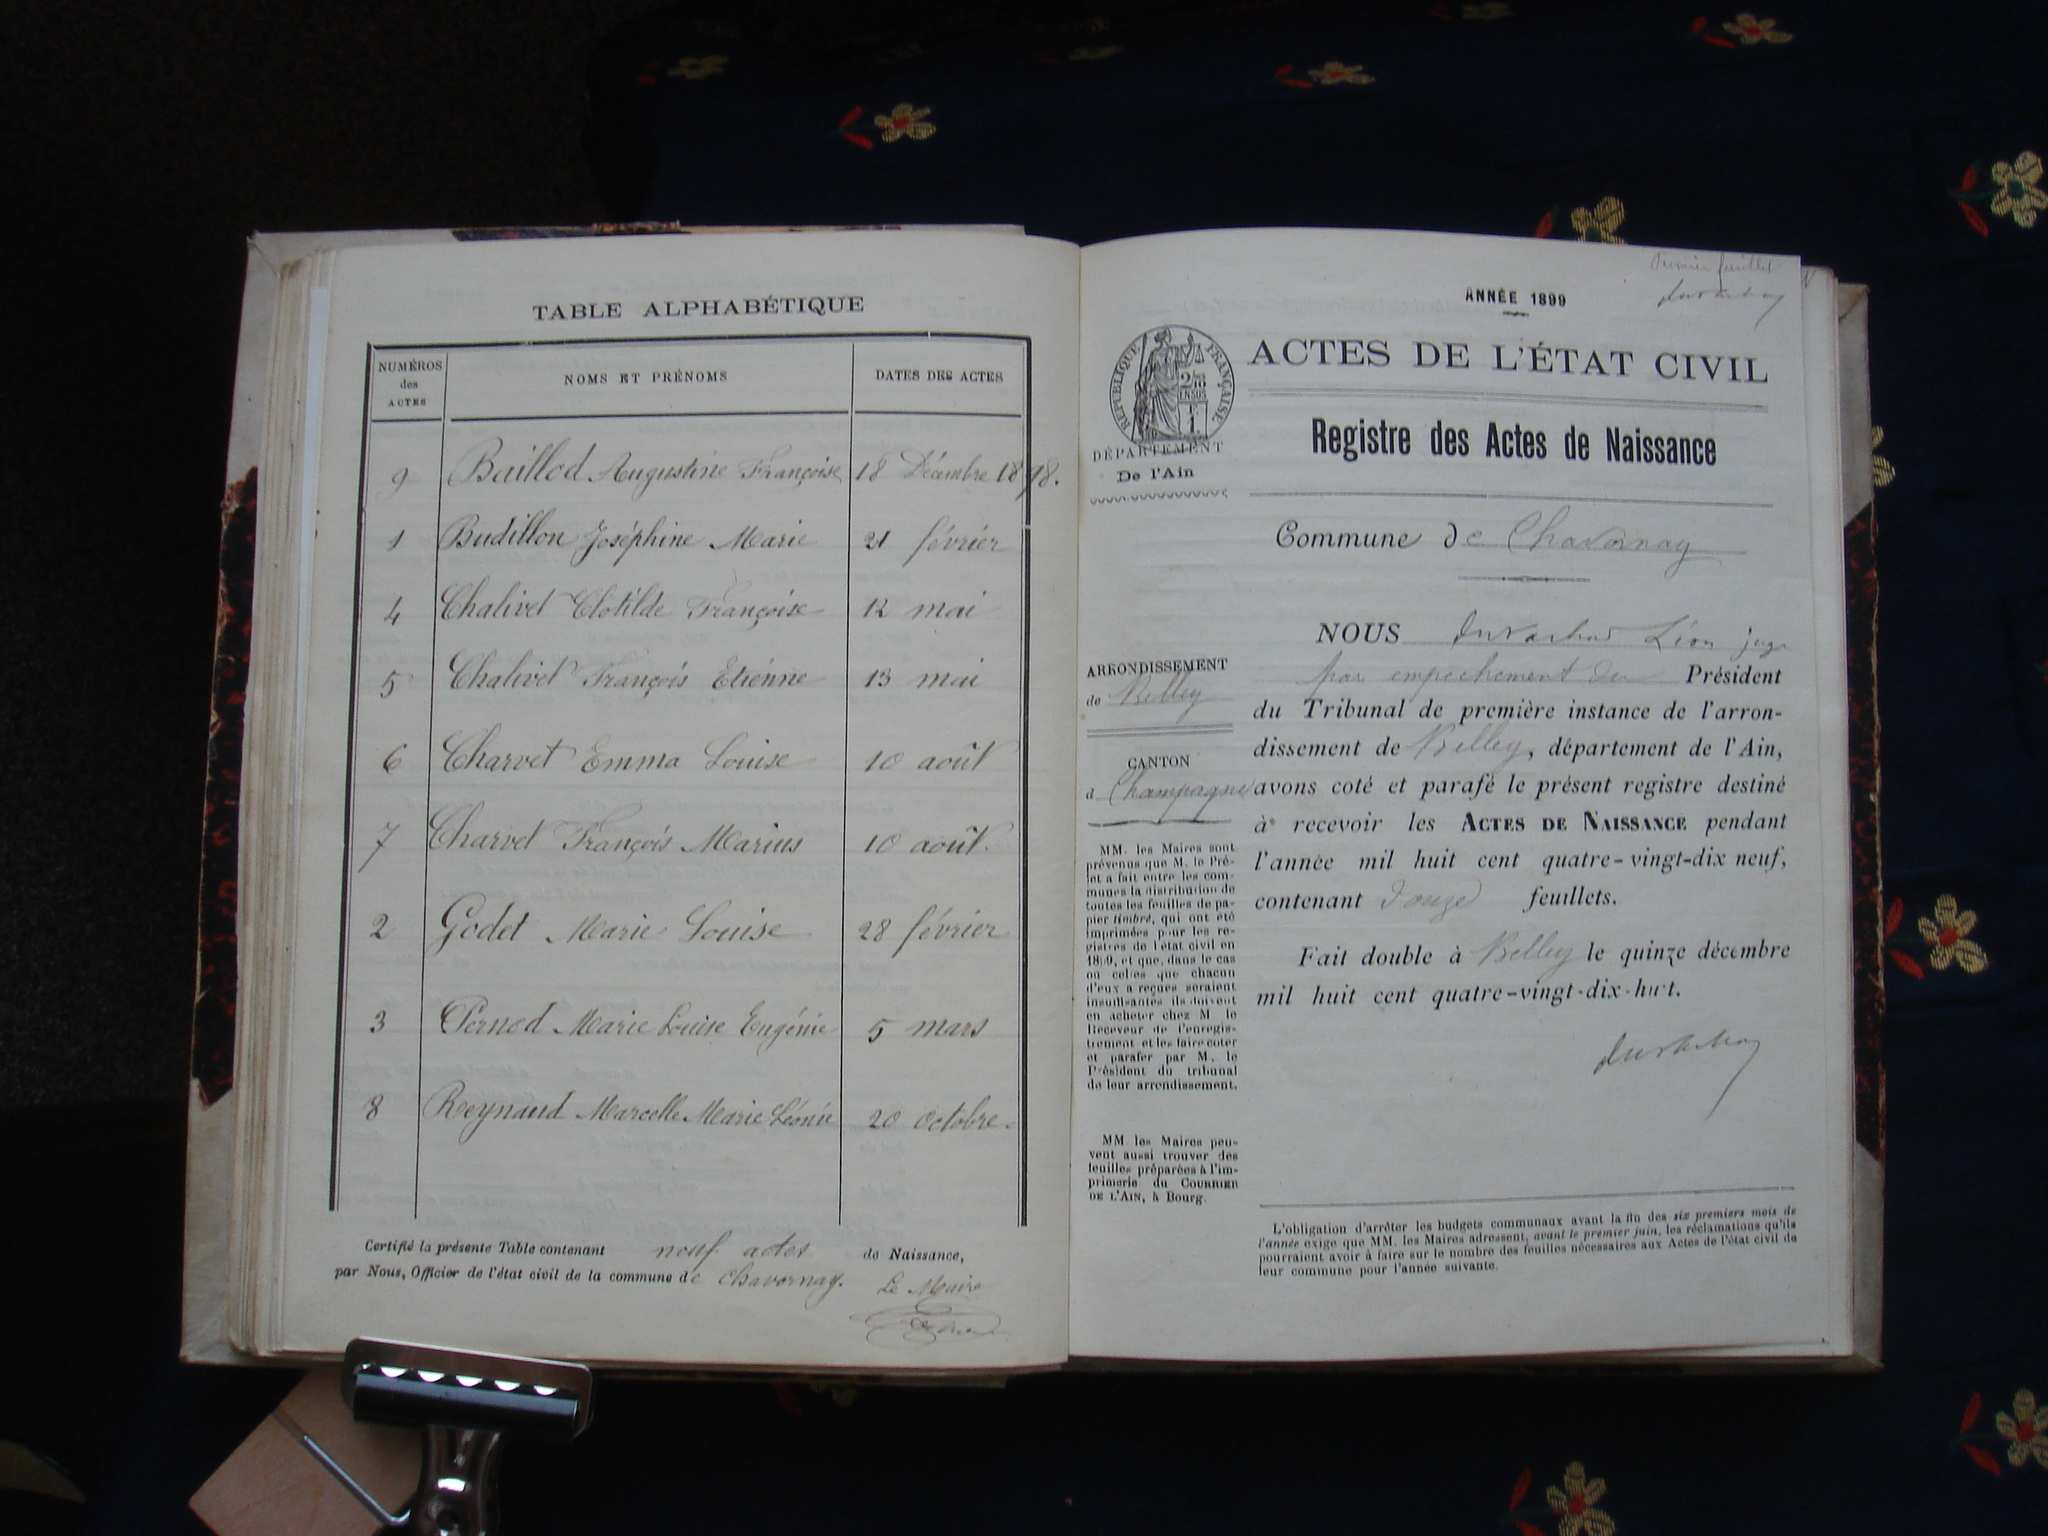 TABLE ALPHABÉTIQUE
NUMÉROS
des
ACTES
NOMS ET PRÉNOMS
DATES DES ACTES
9 Baillod Augustine Françoise 18 Décembre 1898.
1 Budillon Joséphine Marie 21 février
4 Chalivet Clotilde Françoise 12 mai
5 Chalivet François Etienne 13 mai
6 Charvet Emma Louise 10 août
7 Charvet François Marius 10 août.
2 Godet Marie Louise 28 février
3 Pernod Marie Louise Eugénie 5 mars
8 Reynaud Marcelle Marie Léonie 20 octobre.
Certifié la présente Table contenant neuf actes de Naissance,
par Nous, Officier de l'état civil de la commune de Chavornay.
Le Maire
Premier feuillet
ANNÉE 1899
RÉPUBLIQUE FRANÇAISE
ACTES DE L'ÉTAT CIVIL
Registre des Actes de Naissance
DÉPARTEMENT
De l'Ain
Commune de Chavornay
ARRONDISSEMENT
de Belley
CANTON
d Champagne
MM. les Maires sont
prévenus que M. le Pré-
fet a fait entre les com-
munes la distribution de
toutes les feuilles de pa-
pier timbré, qui ont été
imprimées pour les re-
gistres de l'état civil en
1899, et que, dans le cas
où celles que chacun
d'eux a reçues seraient
insuffisantes ils doivent
en acheter chez M le
Receveur de l'enregis-
trement et les faire coter
et parafer par M. le
Président du tribunal
de leur arrondissement.
MM les Maires peu-
vent aussi trouver des
feuilles préparées à l'im-
primerie du COURRIER
DE L'AIN, à Bourg.
NOUS Léon juge
par empechement du Président
du Tribunal de première instance de l'arron-
dissement de Belley, département de l'Ain,
avons coté et parafé le présent registre destiné
à recevoir les ACTES DE NAISSANCE pendant
l'année mil huit cent quatre-vingt-dix neuf,
contenant douze feuillets.
Fait double à Belley le quinze décembre
mil huit cent quatre-vingt-dix-huit.
L'obligation d'arrêter les budgets communaux avant la fin des six premiers mois de
l'année exige que MM. les Maires adressent, avant le premier juin, les réclamations qu'ils
pourraient avoir à faire sur le nombre des feuilles nécessaires aux Actes de l'état civil de
leur commune pour l'année suivante.